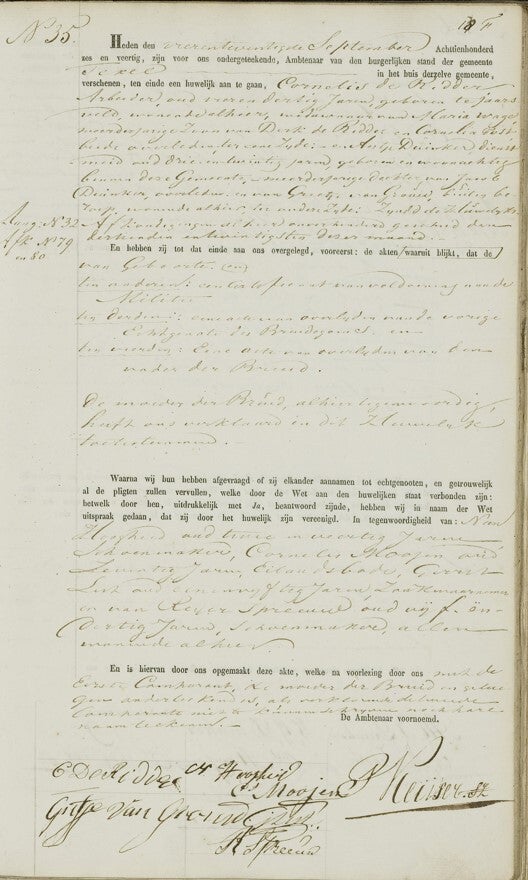 N° 35.
Heden den vierentwintigste September Achttienhonderd
zes en veertig, zijn voor ons ondergeteekende, Ambtenaar van den burgerlijken stand der gemeente
Texel in het huis derzelve gemeente,
verschenen, ten einde een huwelijk aan te gaan, Cornelis de Ridder
Arbeider, oud vierendertig Jaren, geboren te Jaars
veld, wonende alhier, weduwnaar van Maria
meerderjarige Zoon van Derk de Ridder en Cornelia
beide overleden, ter eene Zijde; en Antje Duinker, dienst
meid oud drie en twintig jaren, geboren en woonachtig
binnen deze Gemeente, meerderjarige dochter van Jacob
Duinker, overleden, en van Grietje van Groud, buiten be
roep, wonende alhier, ter andere Zijde; Zijnde de Huwelijks
Afkondigingen alhier onverhinderd geschied den
dertienden en twintigsten dezer maand.
N° 32
N° 79
en 80
En hebben zij tot dien einde aan ons overgelegd, vooreerst: de akten waaruit blijkt, dat de
van Geboorte, en
ten anderen: certificaat van voldoening aan de
Militie
ten derden: eene acte van overleden van de vorige
Echtgenoote des Bruidegoms, en
ten vierden: Eene acte van overleden van den
vader der Bruid.
De moeder der Bruid, alhier tegenwoordig,
heeft ons verklaard in dit Huwelijk
toetestemmen.
Waarna wij hun hebben afgevraagd of zij elkander aannamen tot echtgenooten, en getrouwelijk
al de pligten zullen vervullen, welke door de Wet aan den huwelijken staat verbonden zijn:
hetwelk door hen, uitdrukkelijk met Ja, beantwoord zijnde, hebben wij in naam der Wet
uitspraak gedaan, dat zij door het huwelijk zijn vereenigd. In tegenwoordigheid van:
Hoogheid oud twee en veertig Jaren
Schoenmaker, Cornelis Moojen oud
Jaren, Eilandsbode, Gerrit
List oud een en vijftig Jaren, Zaakwaarnemer
en van Reijer Spreeuw oud vijf en
dertig Jaren, Schoenmaker, allen
wonende alhier.
En is hiervan door ons opgemaakt deze akte, welke na voorlezing door ons met de
Eerste Comparant, de moeder der Bruid en getui
gen onderteekend is, als verklaarde de tweede
Comparante niet te kunnen schrijven noch hare
naam teekenen.
De Ambtenaar voornoemd.
C De Ridder
Hoogheid
C Moojen
Keijser
Gritje van Groud
R Spreeuw